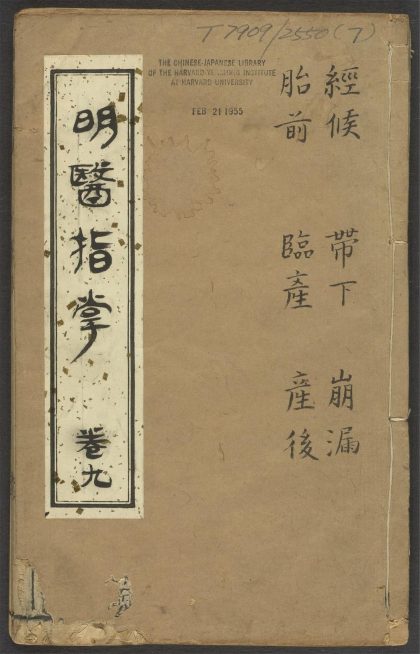 T 7909/2550(7)
THE CHINESE-JAPANESE LIBRARY
OF THE HARVARD-YENCHING INSTITUTE
AT HARVARD UNIVERSITY
FEB 21 1955
經候 帶下 崩漏
胎前 臨產 產後
明醫指掌 卷九